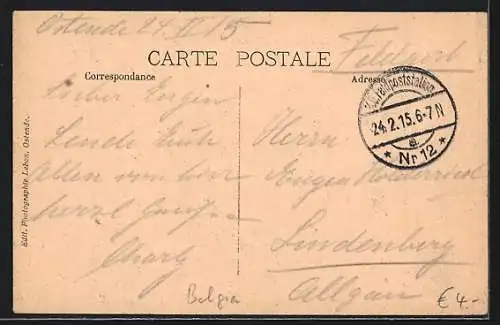 Ostende 24 II 15
CARTE POSTALE
Feldpost
Correspondance
Adresse
K.D. Feldpoststation
24.2.15.6-7 N
a
* Nr 12 *
Lieber Eugen
Sende Euch
Allen von hier
herzl Grüsse
Herrn
Eugen
Lindenberg
Allgäu
Edit. Photographie Lebon, Ostende.
Belgien
€ 4.-